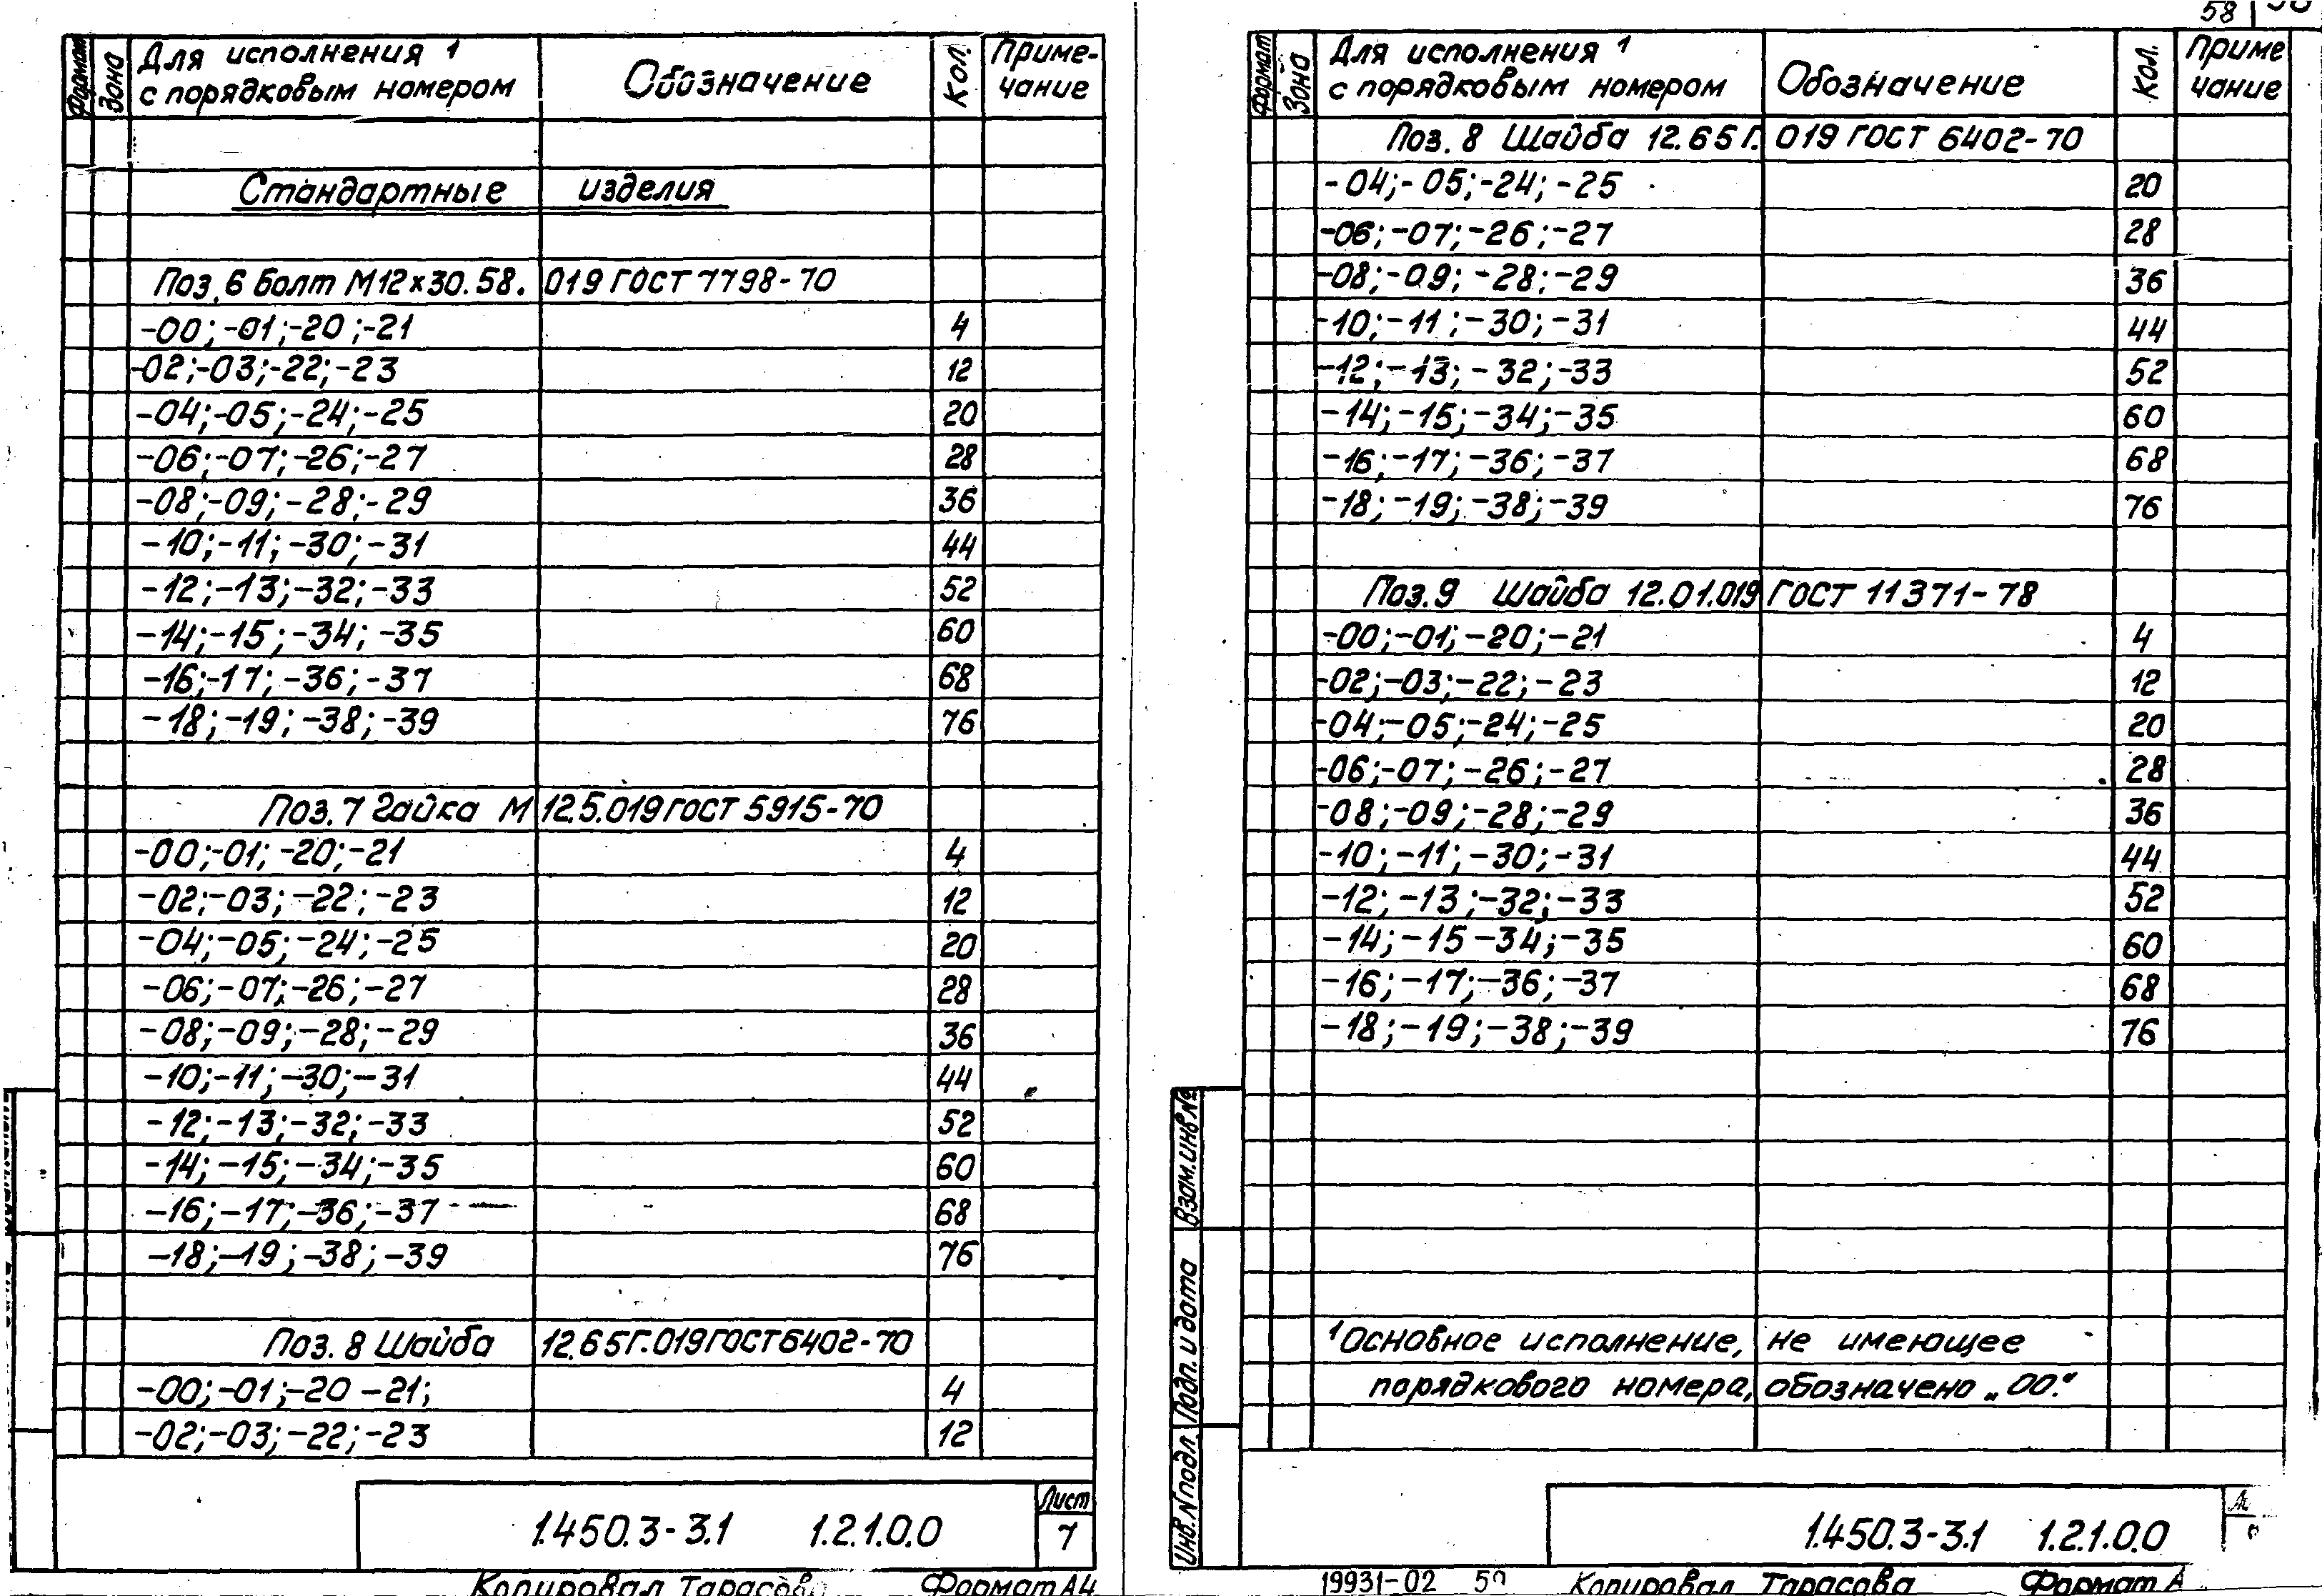 Формат
Зона
Для исполнения ¹
с порядковым номером
Обозначение
Кол.
Приме-
чание
Стандартные изделия
Поз. 6 Болт М12×30.58. 019 ГОСТ 7798-70
-00; -01; -20; -21 4
-02; -03; -22; -23 12
-04; -05; -24; -25 20
-06; -07; -26; -27 28
-08; -09; -28; -29 36
-10; -11; -30; -31 44
-12; -13; -32; -33 52
-14; -15; -34; -35 60
-16; -17; -36; -37 68
-18; -19; -38; -39 76
Поз. 7 Гайка М 12.5.019 ГОСТ 5915-70
-00; -01; -20; -21 4
-02; -03; -22; -23 12
-04; -05; -24; -25 20
-06; -07; -26; -27 28
-08; -09; -28; -29 36
-10; -11; -30; -31 44
-12; -13; -32; -33 52
-14; -15; -34; -35 60
-16; -17; -36; -37 68
-18; -19; -38; -39 76
Поз. 8 Шайба 12.65Г.019 ГОСТ 6402-70
-00; -01; -20 -21; 4
-02; -03; -22; -23 12
1.450.3-3.1 1.2.1.0.0
Лист
7
Копировал Тарасова Формат А4
58
Формат
Зона
Для исполнения ¹
с порядковым номером
Обозначение
Кол.
Приме
чание
Поз. 8 Шайба 12.65Г. 019 ГОСТ 6402-70
-04; -05; -24; -25 20
-06; -07; -26; -27 28
-08; -09; -28; -29 36
-10; -11; -30; -31 44
-12; -13; -32; -33 52
-14; -15; -34; -35 60
-16; -17; -36; -37 68
-18; -19; -38; -39 76
Поз. 9 Шайба 12.01.019 ГОСТ 11371-78
-00; -01; -20; -21 4
-02; -03; -22; -23 12
-04; -05; -24; -25 20
-06; -07; -26; -27 28
-08; -09; -28; -29 36
-10; -11; -30; -31 44
-12; -13; -32; -33 52
-14; -15 -34; -35 60
-16; -17; -36; -37 68
-18; -19; -38; -39 76
¹ Основное исполнение, не имеющее
порядкового номера, обозначено „00."
Взам.инв№
Подп. и дата
Инв.№подл.
1.450.3-3.1 1.2.1.0.0
19931-02 Копировал Тарасова Формат А